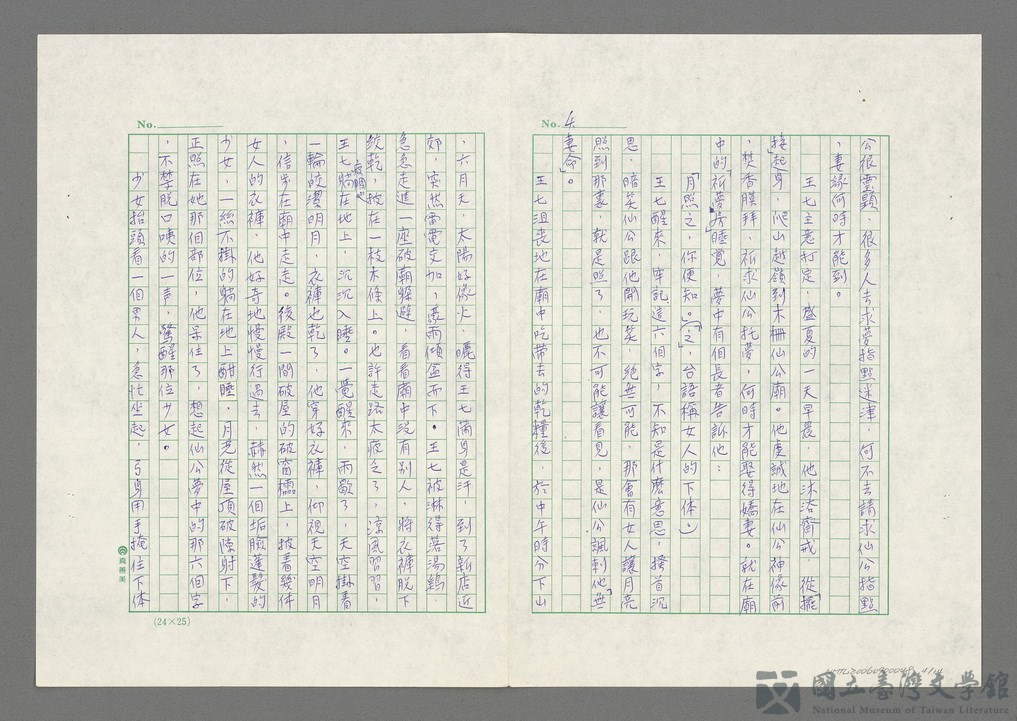 No.
公很靈顯，很多人去求夢指點迷津，何不去請求仙公指點
，妻緣何時才能到。
王七主意打定，盛夏的一天早晨，他沐浴齋戒，從擺
接起身，爬山越嶺到木柵仙公廟。他虔誠地在仙公神像前
，焚香膜拜，祈求仙公托夢，何時才能娶得嬌妻。就在廟
中的「祈夢房」睡覺，夢中有個長者告訴他：
「月照之，你便知。」（「之」，台語稱女人的下体。）
王七醒來，牢記這六個字，不知是什麼意思，搔首沉
思，暗笑仙公跟他開玩笑，絕無可能，那會有女人讓月亮
照到那裏，就是照了，也不可能讓看見，是仙公諷刺他「無
妻命」。
王七沮喪地在廟中吃帶去的乾糧後，於中午時分下山
No.
，六月天，太陽好像火，曬得王七滿身是汗，到了新店近
郊，突然雷電交加，豪雨傾盆而下。王七被淋得落湯鷄，
急急走進一座破廟躲避，看看廟中沒有別人，將衣褲脫下
絞乾，披在一枝木條上。也許走路太疲乏了，涼風習習，
王七疲睏地躺在地上，沉沉入睡。一覺醒來，雨歇了，天空掛着
一輪皎潔明月，衣褲也乾了，他穿好衣褲，仰視天空明月
，信步在廟中走走。後殿一間破屋的破窗櫺上，披着幾件
女人的衣褲，他好奇地慢慢行過去，赫然一個垢臉蓬髮的
少女，一絲不掛的躺在地上酣睡，月光從屋頂破隙射下，
正照在她那個部位，他呆住了，想起仙公夢中的那六個字
，不禁脫口咦的一聲，驚醒那位少女。
少女抬頭看一個男人，急忙坐起，弓身用手掩住下体
真善美
(24×25)
國立臺灣文學館
National Museum of Taiwan Literature